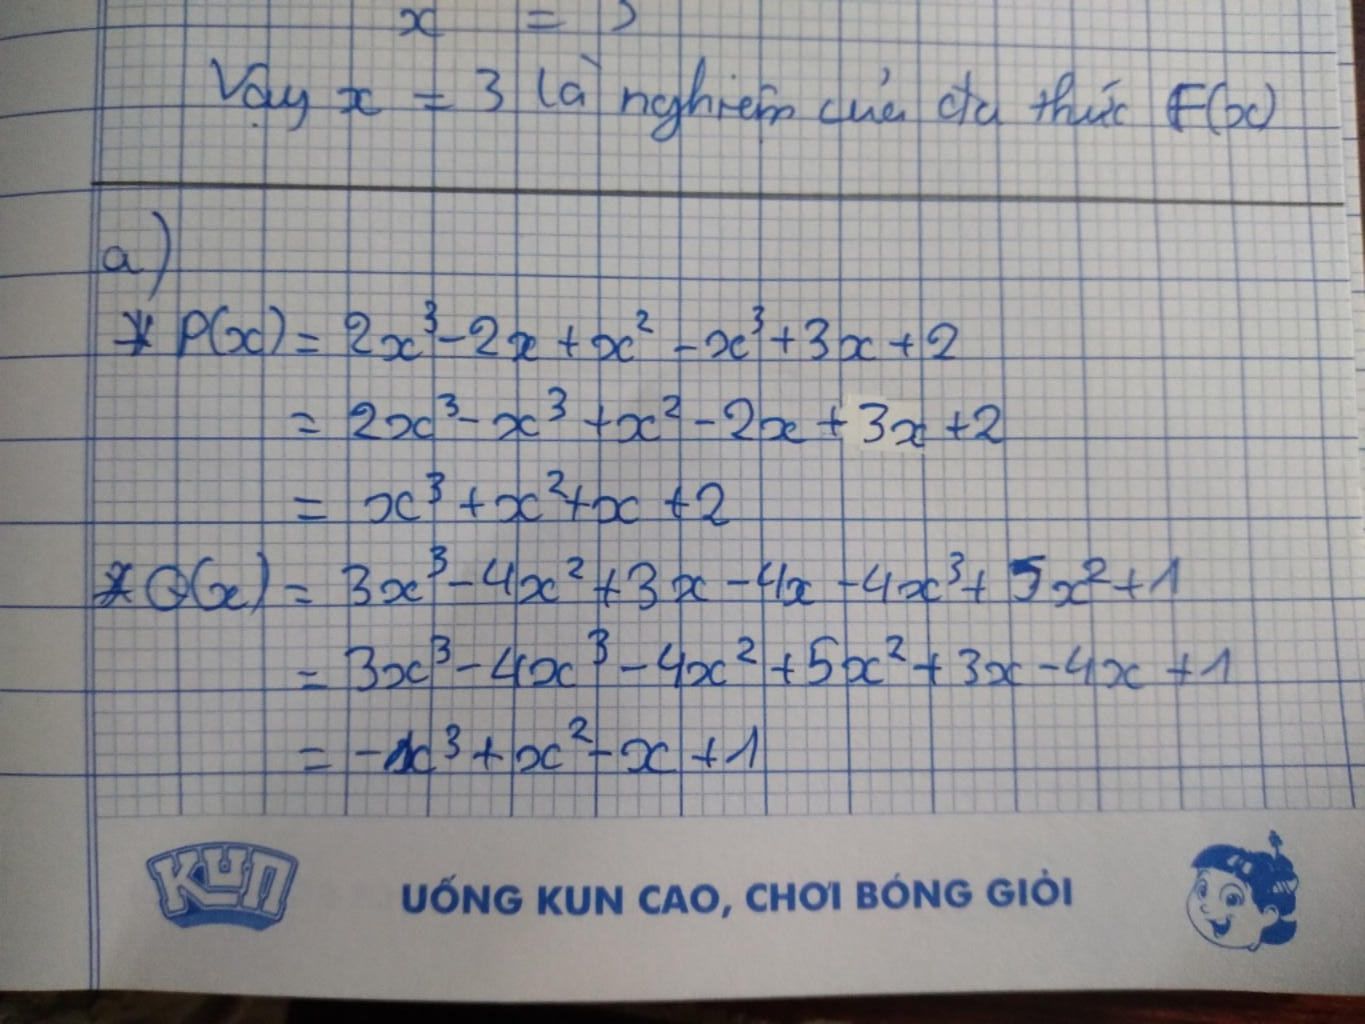 x =
Vậy x = 3 là nghiệm của đa thức F(x)
a)
* P(x) = 2x³ - 2x + x² - x³ + 3x + 2
= 2x³ - x³ + x² - 2x + 3x + 2
= x³ + x² + x + 2
* Q(x) = 3x³ - 4x² + 3x - 4x - 4x³ + 5x² + 1
= 3x³ - 4x³ - 4x² + 5x² + 3x - 4x + 1
= -x³ + x² - x + 1
KUN UỐNG KUN CAO, CHƠI BÓNG GIỎI